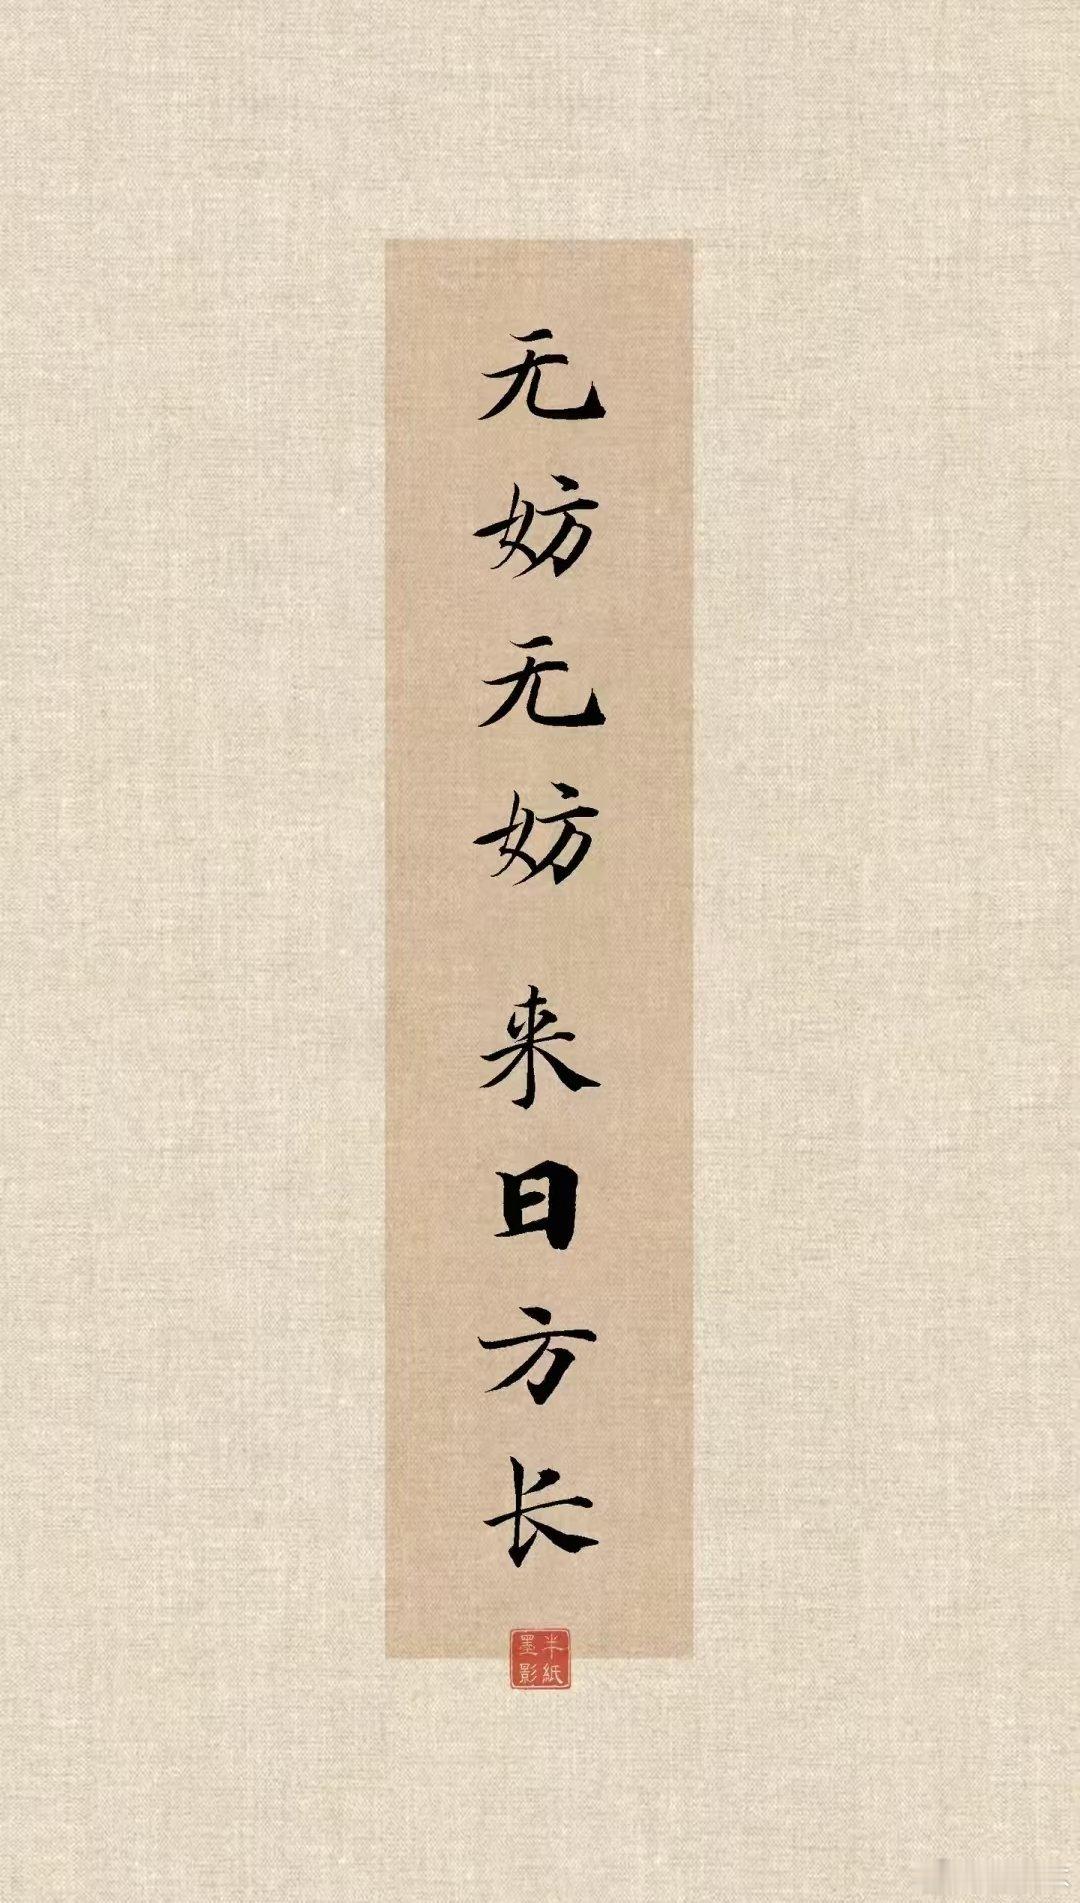 无妨无妨 来日方长
半紙墨影